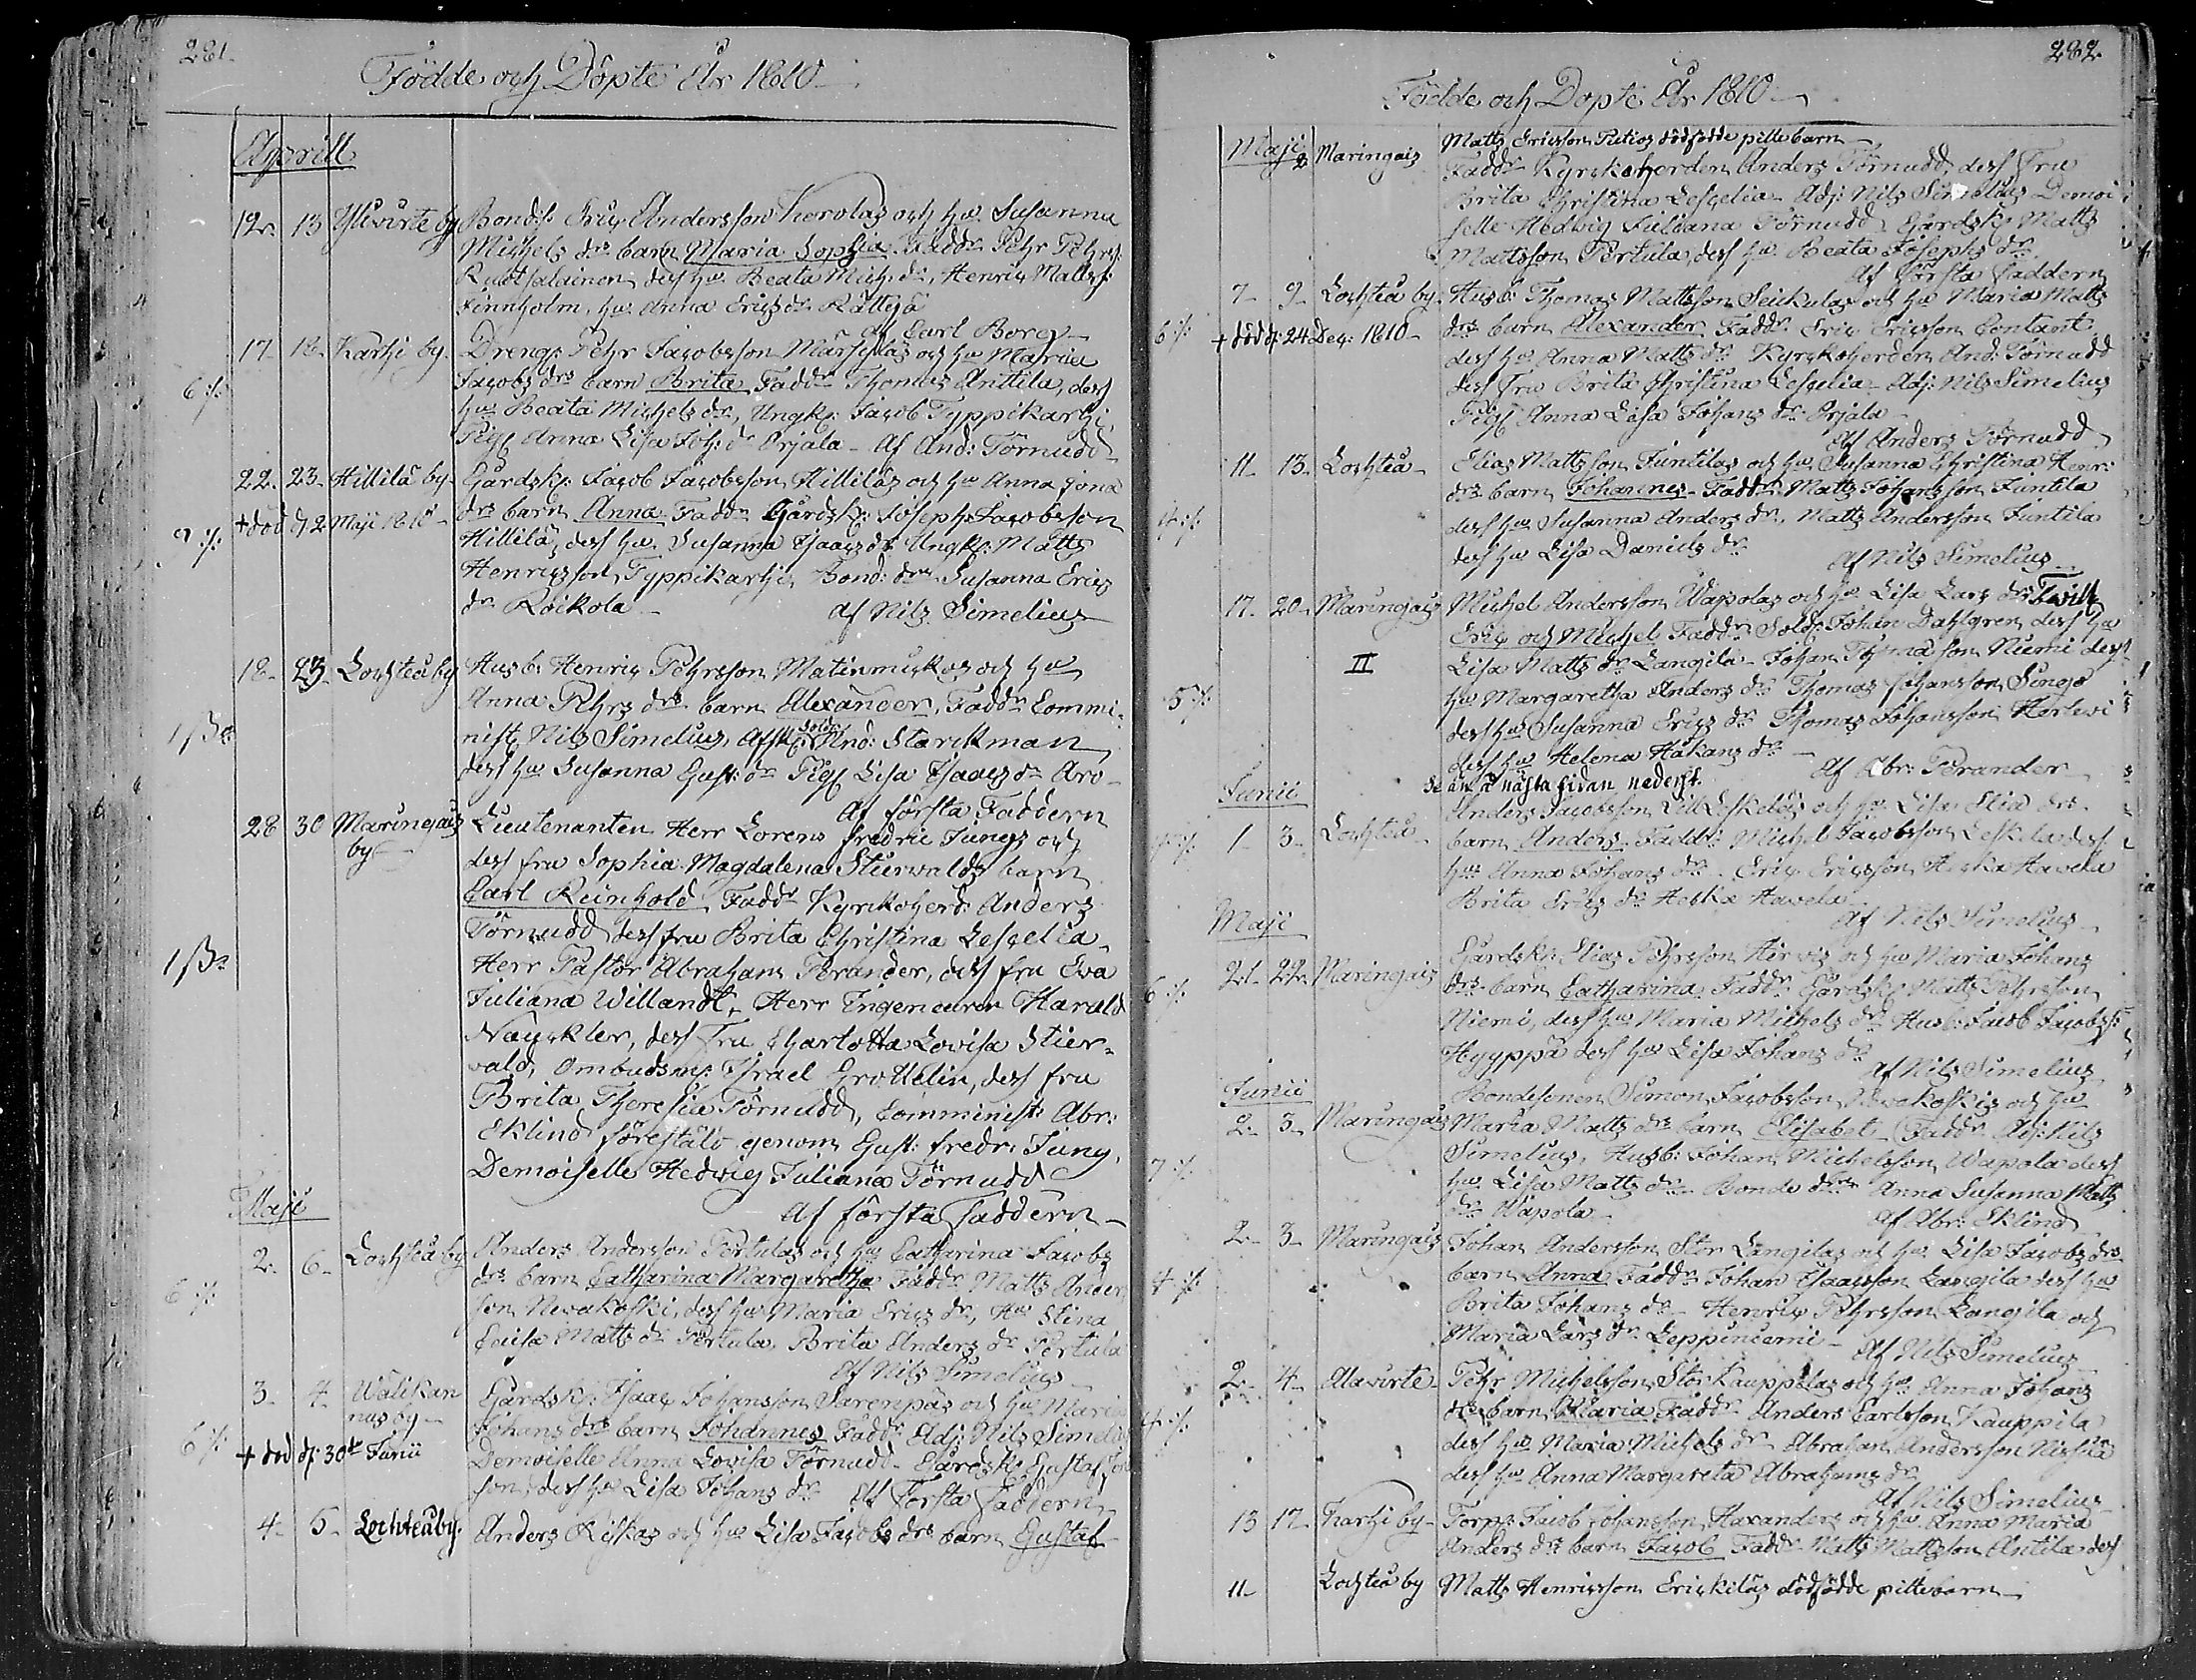 281.
Födde och Döpte År 1810
Aprill
12. 13 Yliwirte by Bond:s: Eric Andersson Korolas och hu Susanna
Michels drs barn Maria Sophia. Faddr Pehr Pehrs:
dess hu Beata Mich: dr, Henric Matts:
Finnholm, hu Anna Erics dr Rättyä
Af Carl Borg
17. 18. Karhi by. Drengs Pehr Jacobsson Märsylas och hu Maria
6 /: Jacobs drs barn Brita Faddr Thomas Anttila, dess
hu Beata Michels dr, Ungk: Jacob Typpikarhi,
Pig: Anna Lisa Joh: dr Orjala - Af And: Törnudd
22. 23. Hillilä by. Gårdsk: Jacob Jacobsson Hilliläs och hu Anna Jona
+ död d: 2 Maji 1810 - drs barn Anna Faddr Gårdsk: Joseph Jacobsson
9 /: Hillilä, dess hu Susanna Isaacs dr Ungk: Matts
Henricsson Typpikarhi, Bond: dr Susanna Erics
dr Roikola - af Nils Simelius
18. 23. Lochteå by Husb: Henric Pehrsson Matinmickos och hu
Anna Pehrs drs barn Alexander, Faddr Commi-
nist: Nils Simelius, Afsk: Sold: And: Starckman
dess hu Susanna Gust: dr Pig: Lisa Isaacs dr Aro -
Af första Faddern
28 30 Maringais by Lieutenanten Herr Lorens Fredric Jungs och
dess fru Sophia Magdalena Stierwalds barn
Carl Reinhold Faddr Kyrckoherd: Anders
Törnudd dess fru Brita Christina Lescelia,
Herr Pastor Abraham Perander, dess fru Eva
Juliana Willandt, Herr Ingenieuren Harald
Nayckler, dess Fru Charlotta Lovisa Stier-
wald, Ombudsm: Israel Grottelin, dess fru
Brita Theresia Törnudd, Comminist: Abr:
Eklind förestäld genom Gust: Fredr: Jung,
Demoiselle Hedwig Juliana Törnudd
Af första Faddern -
Maji
2. 6. Lochteå by Anders Andersson Pertulas och hu Catharina Jacobs
6 /: drs barn Catharina Margaretha Faddr Matts Anders
son Newakoski, dess hu Maria Erics dr, Hu Stina
Caisa Matts dr Pertula, Brita Anders dr Pertula
Af Nils Simelius
3. 4. Wälikan Gårdsk: Isaac Johansson Sarenpäs och hu Maria
nus by - Johans drs barn Johannes Faddr Adj: Nils Simelius
6 /: + död d: 30de Junii Demoiselle Anna Lovisa Törnudd - Gårdsk: Gustaf
son, dess hu Lisa Johans dr Af Första Faddern
4. 5. Lochteå by. Anders Riskas och hu Lisa Jacobs drs barn Gustaf
282
Födde och Döpte År 1810 -
Maji 2 Maringais Matts Ericsson Pietios dödfödde pilte barn -
Faddr Kyrckoherden Anders Törnudd, dess Fru
Brita Christina Lescelia - Adj: Nils Simelius Demoi
selle Hedwig Juliana Törnudd Gårdsk: Matts
Mattsson Pertula, dess hu Beata Josephs dr
Af Första Faddern
7. 9. Lochteå by. Husb: Thomas Mattsson Seikulas och hu Maria Matts
6 /: + död d: 24 Dec: 1810 - drs barn Alexander Faddr Eric Ericsson Contant
dess hu Anna Matts dr Kyrckoherden And: Törnudd
dess fru Brita Christina Lescelia - Adj: Nils Simelius
Pig: Anna Lisa Johans dr Orjala -
Af Anders Törnudd
11. 13. Lochteå - Elias Mattsson Juntilas och hu Susanna Christina Henr:
drs barn Johannes - Faddr Matts Johansson Juntila
dess hu Susanna Anders dr, Matts Andersson Juntila
dess hu Lisa Daniels dr Af Nils Simelius
17. 20. Maringais Michel Andersson Wapolas och hu Lisa Lars drs Twill:
Eric och Michel Faddr Sold: Johan Dahlgren dess hu
II Lisa Matts dr Langila - Johan Thomasson Niemi dess
5 /: hu Margaretha Anders dr Thomas Johansson Junge
dess hu Susanna Erics dr Thomas Johansson Harlewi
dess hu Helena Håkans dr - Af Abr: Perander
Se än å nästa sidan nederst.
Junii
Anders Jacobsson Lill Leskeläs och hu Lisa Elia drs
1. 3. Lochteå barn Anders Faddr: Michel Jacobsson Leskela dess
hu Anna Johans dr - Eric Ericsson Hawela
Brita Erics dr Hawela
Af Nils Simelius
Maji
Gårdsk: Elias Pehrsson Hirwis och hu Maria Johans
21. 22. Maringais drs barn Catharina Faddr Gårdsk: Matts Pehrsson
6 /: Niemi, dess hu Maria Michels dr Husb: Jacob Jacobss:
Hyyppä dess hu Lisa Johans dr
af Nils Simelius
Junii
Bondesonen Simon Jacobsson Newakoskis och hu
2. 3. Maringais Maria Matts drs barn Elisabet Faddr Adj: Nils
7 /: Simelius, Husb: Johan Michelsson Wapola dess
hu Lisa Matts dr Bonde dr Anna Susanna Matts
dr Wapola af Abr: Eklind
2. 3. Maringais Johan Andersson Stor Langilas och hu Lisa Jacobs drs
4 /: barn Anna Faddr Johan Isaacsson Langila dess hu
Brita Johans dr Henric Pehrsson Langila och
Maria Lars dr Leppiniemi - Af Nils Simelius
2. 4. Alawirte Pehr Michelsson Stor Kauppilas och hu Anna Johans
4 /: drs barn Maria Faddr Anders Carlsson Kauppila
dess hu Maria Michels dr Abraham Andersson
dess hu Anna Margareta Abrahams dr
Af Nils Simelius
13 17 Karhi by - Torp: Jacob Johansson Haxanders och hu Anna Maria
Anders drs barn Jacob Faddr Matts Mattsson Antila dess
11 Lochteå by Matts Henricsson Erickiläs dödfödde piltebarn